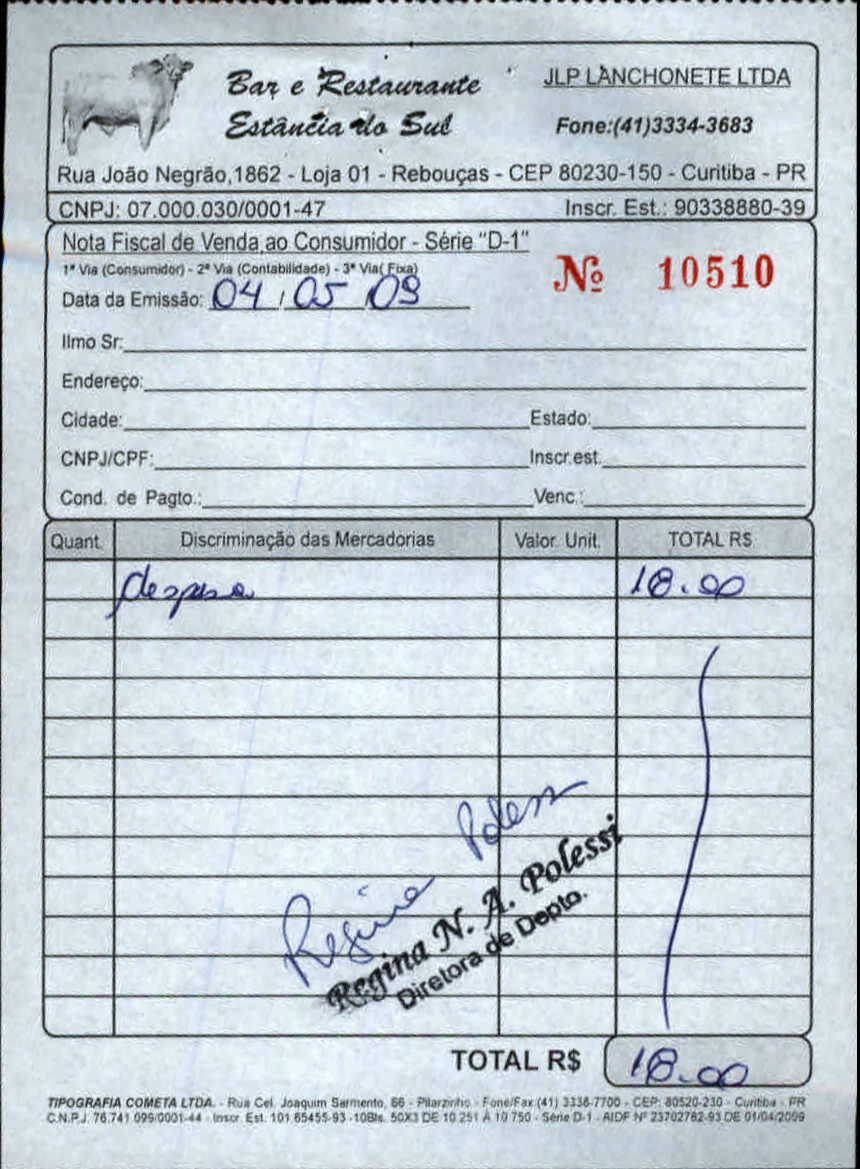 Bar e Restaurante
Estância do Sul
JLP LANCHONETE LTDA
Fone:(41)3334-3683
Rua João Negrão,1862 - Loja 01 - Rebouças - CEP 80230-150 - Curitiba - PR
CNPJ: 07.000.030/0001-47 Inscr. Est.: 90338880-39
Nota Fiscal de Venda ao Consumidor - Série "D-1"
1ª Via (Consumidor) - 2ª Via (Contabilidade) - 3ª Via( Fixa)
Nº 10510
Data da Emissão: 04 / 05 / 09
Ilmo Sr:
Endereço:
Cidade: Estado:
CNPJ/CPF: Inscr.est.
Cond. de Pagto.: Venc.:
Quant. Discriminação das Mercadorias Valor. Unit. TOTAL R$
despesa 18.00
Regina Polessi
Regina N. A. Polessi
Diretora de Depto.
TOTAL R$ 18.00
TIPOGRAFIA COMETA LTDA. - Rua Cel. Joaquim Sarmento, 66 - Pilarzinho - Fone/Fax:(41) 3338-7700 - CEP: 80520-230 - Curitiba - PR
C.N.P.J. 76.741.099/0001-44 - Inscr. Est. 101.65455-93 - 10Bls. 50X3 DE 10.251 À 10.750 - Série D-1 - AIDF Nº 23702762-93 DE 01/04/2009